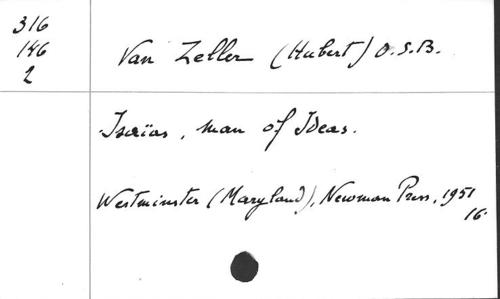 316
146
2
Van Zeller (Hubert) O.S.B.
Isaïas, man of Ideas.
Westminster (Maryland), Newman Press, 1951
16°